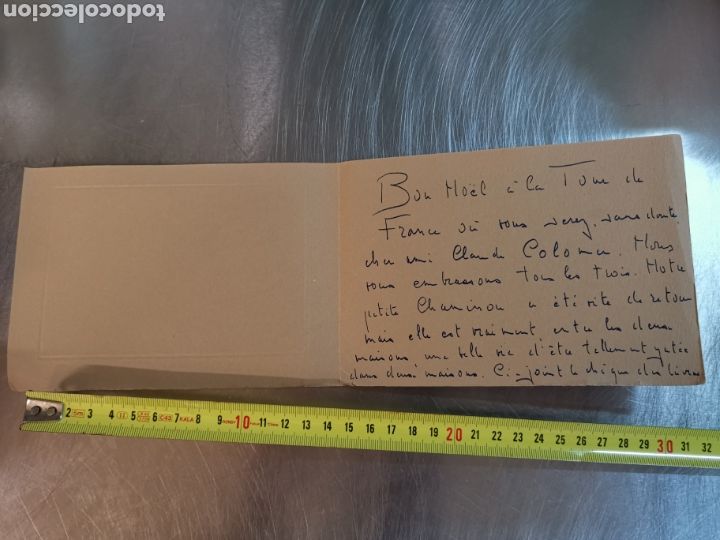 todocoleccion
Bon Noël à la Tour de
France où vous serez, sans doute,
cher ami Claude Colomer. Nous
vous embrassons tous les trois. Notre
petite Chaminou a été vite de retour
mais elle est vraiment entre les deux
maisons une telle vie d'être tellement gâtée
dans deux maisons. Ci-joint le chèque des livres
2 5m 3 4 II 5 6 7 8 9 10 11 12 13 14 15 16 17 18 19 20 21 22 23 24 25 26 27 28 29 30 31 32